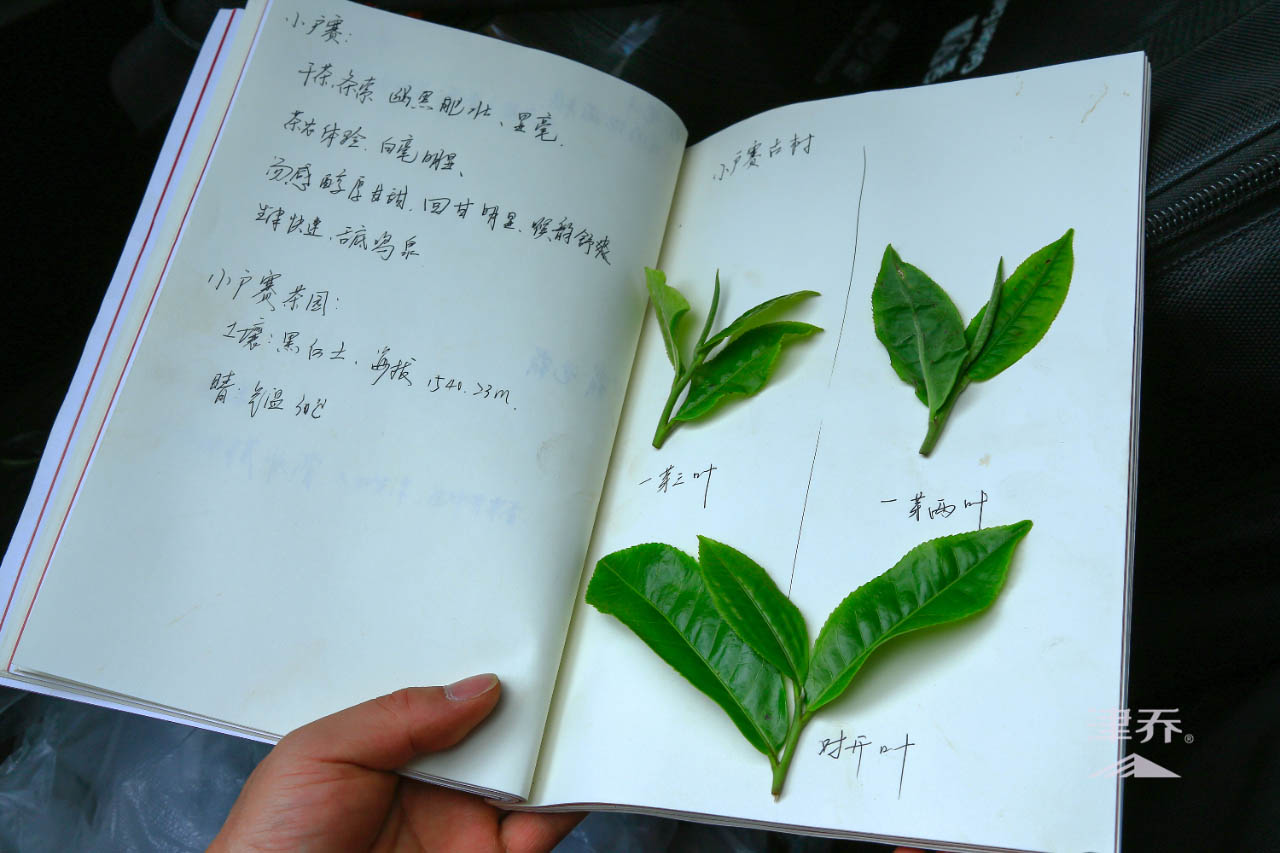 小户赛:
干茶,条索 黝黑肥壮、显毫.
茶芯体验. 白毫明显、
口感醇厚甘甜. 回甘明显. 喉韵舒爽
生津快速、舌底鸣泉
小户赛茶园:
土壤:黑石土. 海拔1540.23m.
晴: 气温 30℃
小户赛古村
一芽三叶
一芽两叶
对开叶
乔®